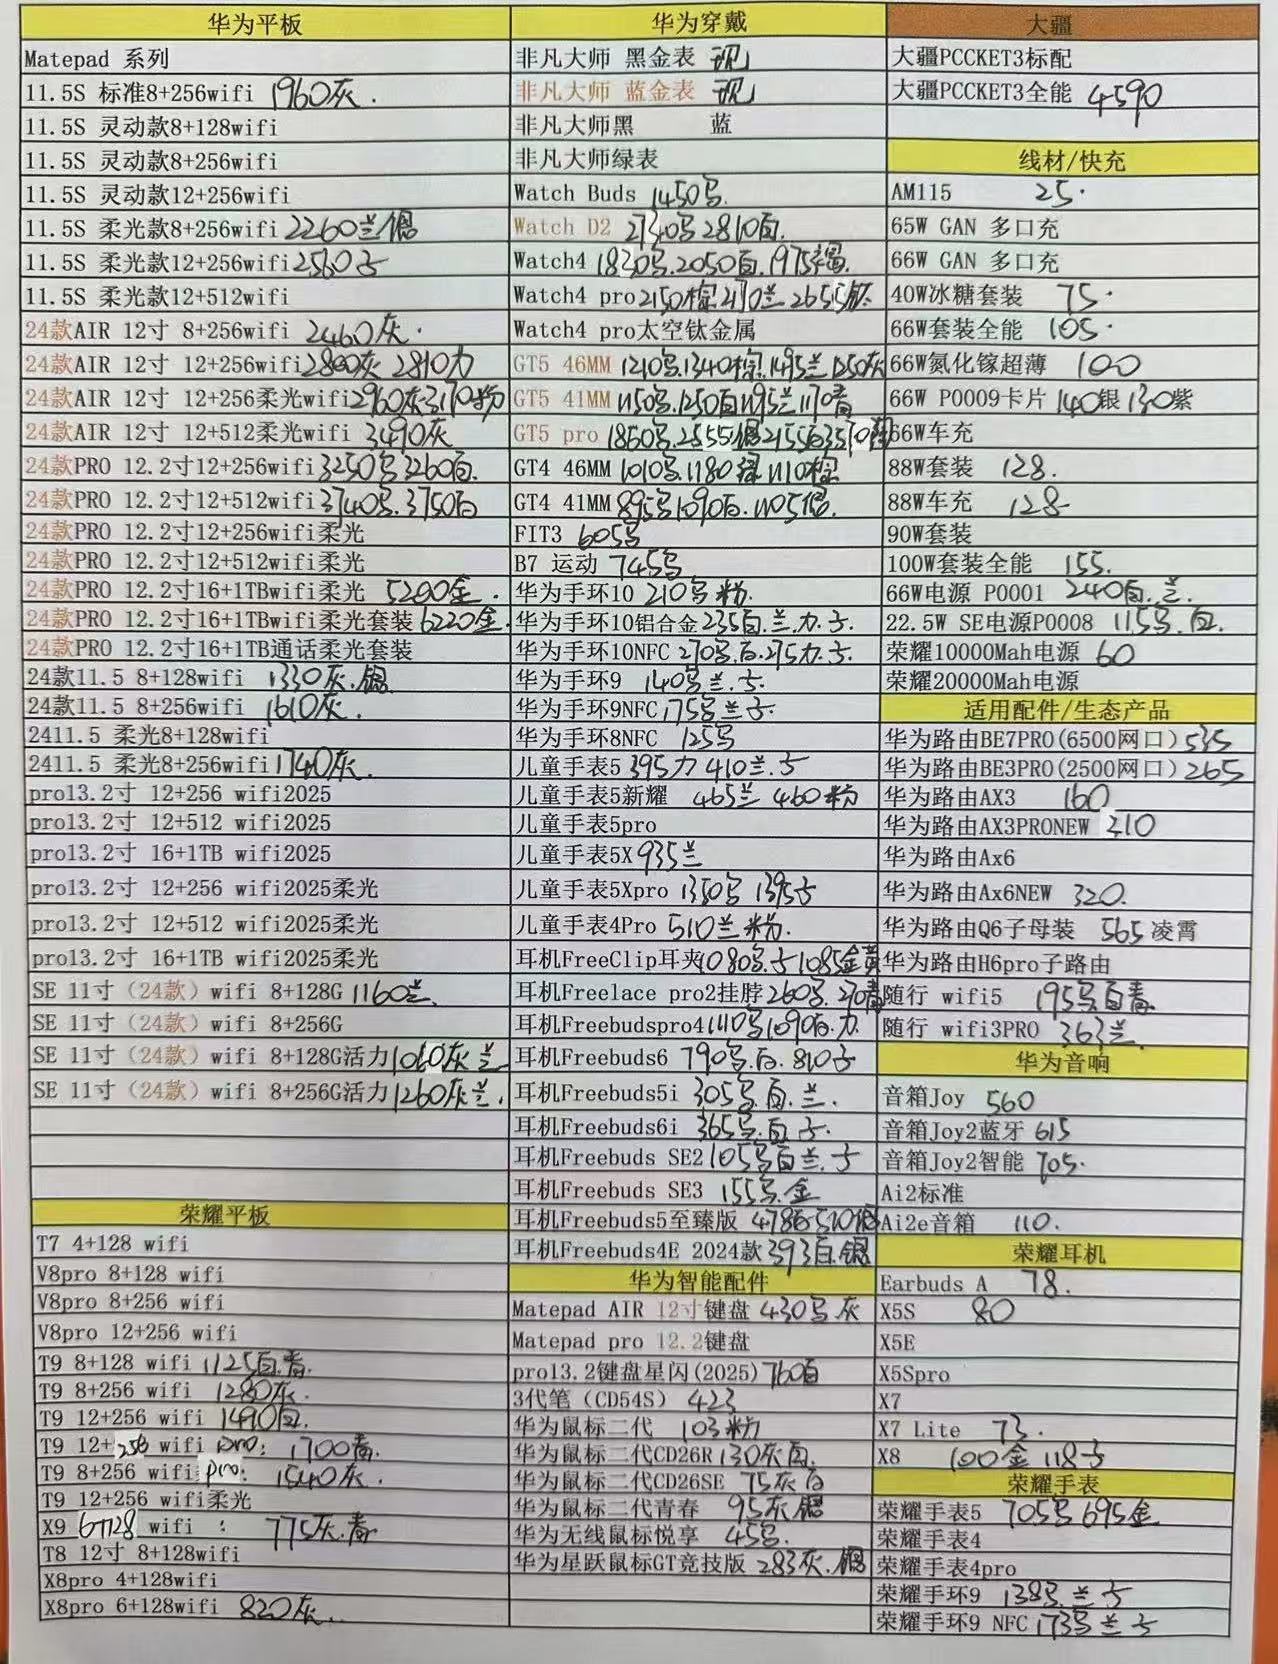 华为平板
Matepad 系列
11.5S 标准8+256wifi 1960灰.
11.5S 灵动款8+128wifi
11.5S 灵动款8+256wifi
11.5S 灵动款12+256wifi
11.5S 柔光款8+256wifi 2260兰银
11.5S 柔光款12+256wifi 2560子
11.5S 柔光款12+512wifi
24款AIR 12寸 8+256wifi 2460灰.
24款AIR 12寸 12+256wifi 2800灰 2810力
24款AIR 12寸 12+256柔光wifi 2960灰 3170粉
24款AIR 12寸 12+512柔光wifi 3490灰
24款PRO 12.2寸12+256wifi 3250号 3260百.
24款PRO 12.2寸12+512wifi 3740号. 3750百
24款PRO 12.2寸12+256wifi柔光
24款PRO 12.2寸12+512wifi柔光
24款PRO 12.2寸16+1TBwifi柔光 5200金.
24款PRO 12.2寸16+1TBwifi柔光套装 6220金.
24款PRO 12.2寸16+1TB通话柔光套装
24款11.5 8+128wifi 1330灰.银
24款11.5 8+256wifi 1610灰.
2411.5 柔光8+128wifi
2411.5 柔光8+256wifi 1740灰.
pro13.2寸 12+256 wifi2025
pro13.2寸 12+512 wifi2025
pro13.2寸 16+1TB wifi2025
pro13.2寸 12+256 wifi2025柔光
pro13.2寸 12+512 wifi2025柔光
pro13.2寸 16+1TB wifi2025柔光
SE 11寸（24款）wifi 8+128G 1160兰.
SE 11寸（24款）wifi 8+256G
SE 11寸（24款）wifi 8+128G活力 1060灰 兰
SE 11寸（24款）wifi 8+256G活力 1260灰兰.
荣耀平板
T7 4+128 wifi
V8pro 8+128 wifi
V8pro 8+256 wifi
V8pro 12+256 wifi
T9 8+128 wifi 1125百.青.
T9 8+256 wifi 1280灰.
T9 12+256 wifi 1490百.
T9 12+256 wifi pro: 1700青.
T9 8+256 wifi pro: 1540灰.
T9 12+256 wifi柔光
X9 6+128 wifi : 775灰.青
T8 12寸 8+128wifi
X8pro 4+128wifi
X8pro 6+128wifi 820灰..
华为穿戴
非凡大师 黑金表 现
非凡大师 蓝金表 现
非凡大师黑 蓝
非凡大师绿表
Watch Buds 1450号.
Watch D2 2740号 2810百.
Watch4 1830号.2050百.1975褐.
Watch4 pro 2150棕 2170兰 2655钛
Watch4 pro太空钛金属
GT5 46MM 1210号.1340棕.1495兰 1250灰
GT5 41MM 1150号.1250百 1195兰 1170青
GT5 pro 1860号.2555银 2155百 3570
GT4 46MM 1010号.1180绿 1110棕
GT4 41MM 895号 1090百.1105银.
FIT3 605号
B7 运动 745号
华为手环10 210号 粉.
华为手环10铝合金 235百.兰.力.子.
华为手环10NFC 270号.百.275力.子.
华为手环9 140号兰.子.
华为手环9NFC 175号兰子.
华为手环8NFC 125号
儿童手表5 395力 410兰.子
儿童手表5新耀 465兰 460粉
儿童手表5pro
儿童手表5X 935兰
儿童手表5Xpro 1350号 1395子
儿童手表4Pro 510兰 粉.
耳机FreeClip耳夹 1080号.子 1085金黄
耳机Freelace pro2挂脖 260号.270青
耳机Freebudspro4 1110号 1090百.力
耳机Freebuds6 790号.百. 810子
耳机Freebuds5i 305号.百.兰.
耳机Freebuds6i 365号.百 子.
耳机Freebuds SE2 105号百兰.子
耳机Freebuds SE3 155号.金
耳机Freebuds5至臻版 478百 510银
耳机Freebuds4E 2024款 393百.银
华为智能配件
Matepad AIR 12寸键盘 430号灰
Matepad pro 12.2键盘
pro13.2键盘星闪(2025) 760百
3代笔（CD54S） 423
华为鼠标二代 103粉
华为鼠标二代CD26R 130灰百.
华为鼠标二代CD26SE 75灰百
华为鼠标二代青春 95灰银
华为无线鼠标悦享 45号.
华为星跃鼠标GT竞技版 283灰.银
大疆
大疆PCCKET3标配
大疆PCCKET3全能 4590
线材/快充
AM115 25.
65W GAN 多口充
66W GAN 多口充
40W冰糖套装 75.
66W套装全能 105.
66W氮化镓超薄 100
66W P0009卡片 140银 130紫
66W车充
88W套装 128.
88W车充 128
90W套装
100W套装全能 155.
66W电源 P0001 240百.兰.
22.5W SE电源P0008 115号.百.
荣耀10000Mah电源 60
荣耀20000Mah电源
适用配件/生态产品
华为路由BE7PRO(6500网口) 535
华为路由BE3PRO(2500网口) 265
华为路由AX3 160
华为路由AX3PRONEW 210
华为路由Ax6
华为路由Ax6NEW 320.
华为路由Q6子母装 565 凌霄
华为路由H6pro子路由
随行 wifi5 195号百青
随行 wifi3PRO 363兰
华为音响
音箱Joy 560
音箱Joy2蓝牙 615
音箱Joy2智能 705.
Ai2标准
Ai2e音箱 110.
荣耀耳机
Earbuds A 78.
X5S 80
X5E
X5Spro
X7
X7 Lite 73.
X8 100金 118子
荣耀手表
荣耀手表5 705号 695金
荣耀手表4
荣耀手表4pro
荣耀手环9 138号.兰子
荣耀手环9 NFC 173号兰子